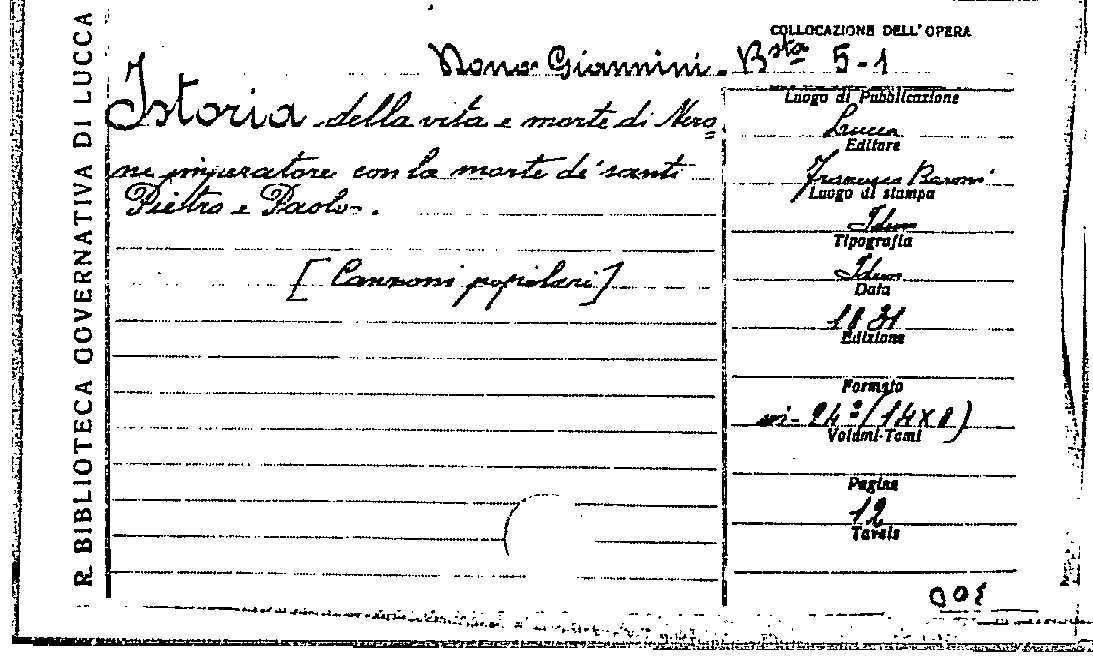 R. BIBLIOTECA GOVERNATIVA DI LUCCA
COLLOCAZIONE DELL'OPERA
Giannini. Bsta 5-1
Istoria della vita e morte di Nero=
ne imperatore con la morte di santi
Pietro e Paolo.
[Canzoni popolari]
Luogo di Pubblicazione
Lucca
Editore
Francesco Baroni
Luogo di stampa
Idem
Tipografia
Idem
Data
1831
Edizione
Formato
24º (14x8)
Volumi-Tomi
Pagine
12
Tavole